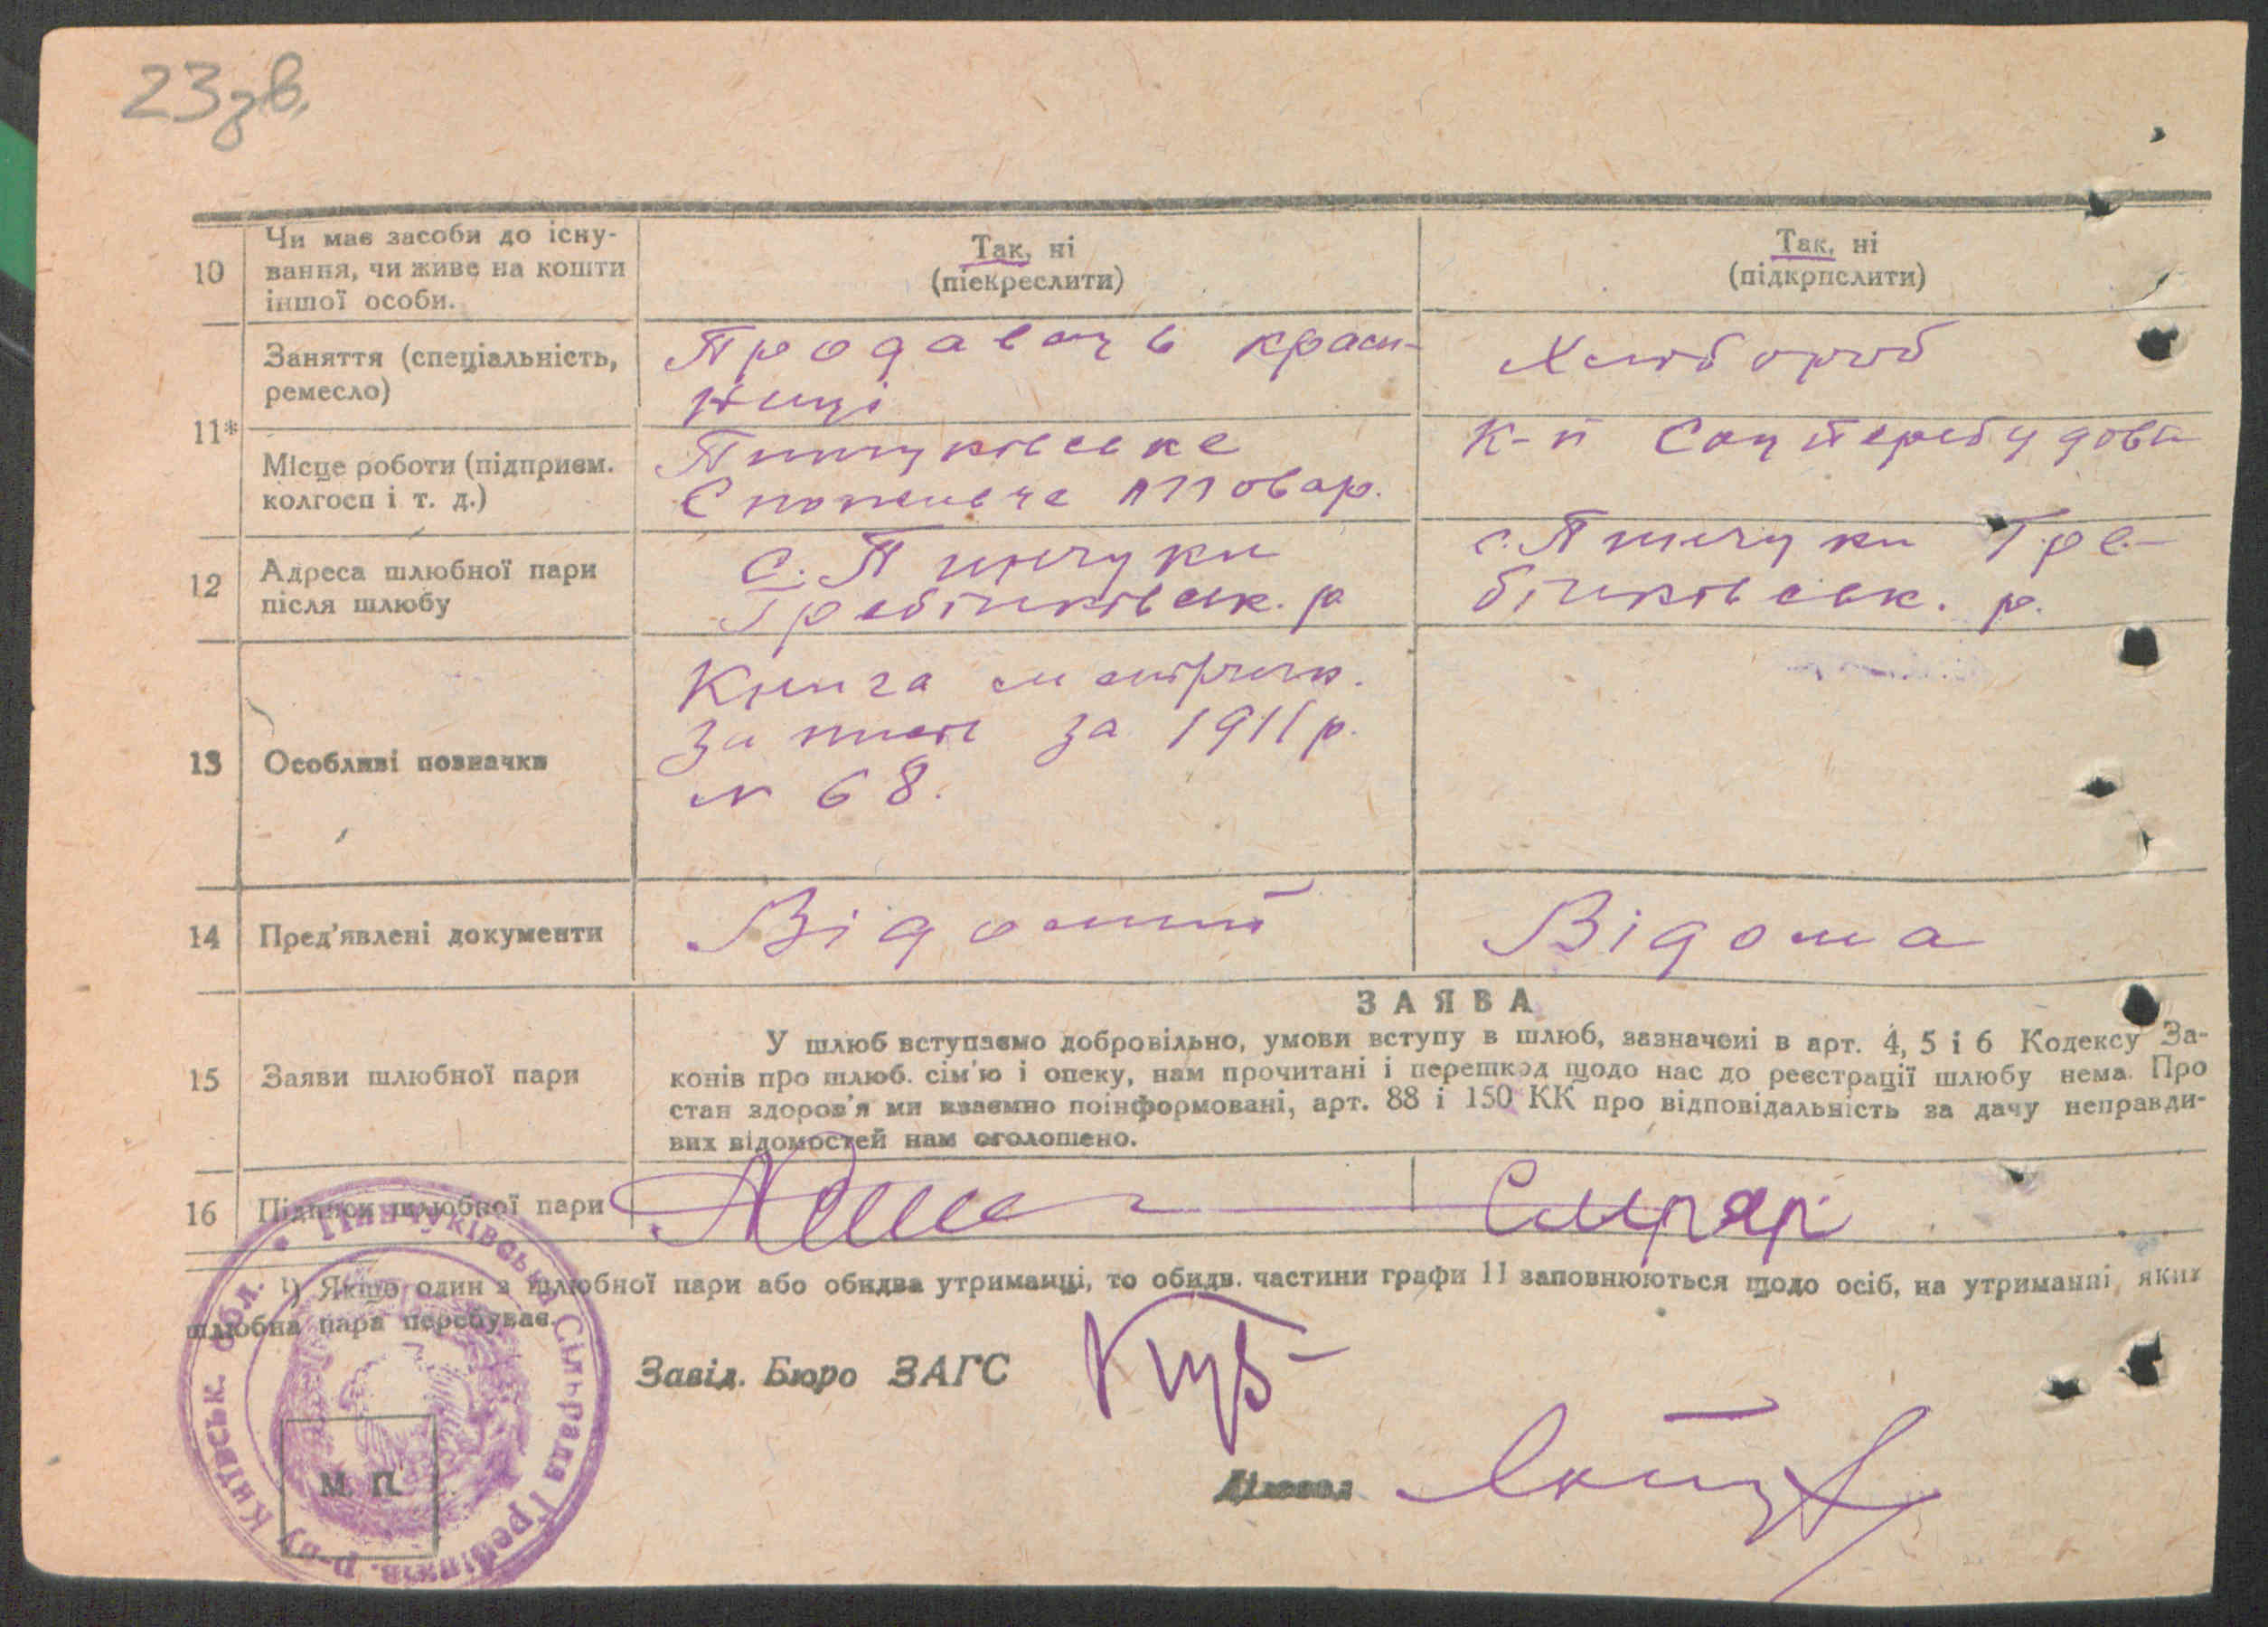 23 зв.
10
Чи має засоби до існу-
вання, чи живе на кошти
іншої особи.
Так, ні
(піекреслити)
Так, ні
(підкрпслити)
11*
Заняття (спеціальність,
ремесло)
Продавець крам-
ниці
Хлібороб
Місце роботи (підприєм.
колгосп і т. д.)
Пинчуківське
Споживче товар.
К-п Соцперебудова
12
Адреса шлюбної пари
після шлюбу
с. Пинчуки
Гребінківськ. р
с. Пинчуки Гре-
бінківськ. р.
13
Особливі позначки
Книга метричн.
записів за 1911 р.
№ 68.
14
Пред'явлені документи
Відомий
Відома
15
Заяви шлюбної пари
ЗАЯВА
У шлюб вступаємо добровільно, умови вступу в шлюб, зазначені в арт. 4, 5 і 6 Кодексу За-
конів про шлюб. сім'ю і опеку, нам прочитані і перешкод щодо нас до реєстрації шлюбу нема. Про
стан здоров'я ми взаємно поінформовані, арт. 88 і 150 КК про відповідальність за дачу неправди-
вих відомостей нам оголошено.
16
Підписи шлюбної пари
¹) Якщо один з шлюбної пари або обидва утриманці, то обидв. частини графи 11 заповнюються щодо осіб, на утриманні яких
шлюбна пара перебуває.
Завід. Бюро ЗАГС
Діловод
М. П.
Пинчуківська Сільрада Гребінків. р-ну Київськ. обл.